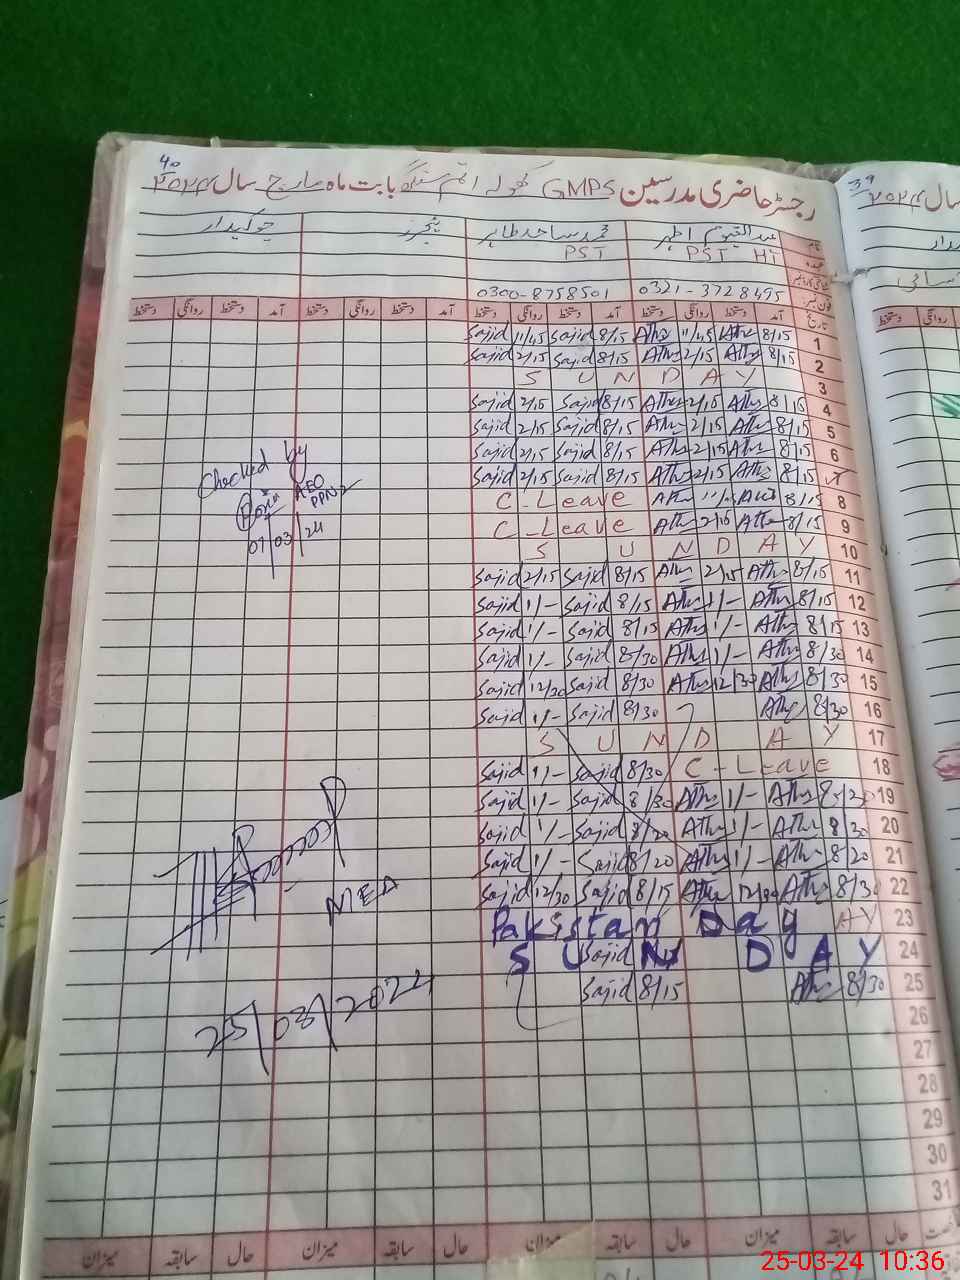 40
رجسٹر حاضری مدرسین GMPS بابت ماہ مارچ سال ۲۰۲۴
39
سال ۲۰۲۴
نام عبدالقیوم اطہر محمد ساجد طاہر چوکیدار
عہدہ PST HT PST
فون نمبر 0321-3728495 0300-8758501
تاریخ آمد دستخط روانگی دستخط آمد دستخط روانگی دستخط آمد دستخط روانگی دستخط آمد دستخط روانگی دستخط
Sajid 11/45 Sajid 8/15 Athr 11/45 Athr 8/15 1
Sajid 2/15 Sajid 8/15 Athr 2/15 Athr 8/15 2
S U N D A Y 3
Sajid 2/15 Sajid 8/15 Athr 2/15 Athr 8/15 4
Sajid 2/15 Sajid 8/15 Athr 2/15 Athr 8/15 5
Sajid 2/15 Sajid 8/15 Athr 2/15 Athr 8/15 6
Sajid 2/15 Sajid 8/15 Athr 2/15 Athr 8/15
C-Leave Athr 8/15 8
C-Leave Athr 2/15 Athr 8/15 9
S U N D A Y 10
Sajid 2/15 Sajid 8/15 Athr 2/15 Athr 8/15 11
Sajid 1/- Sajid 8/15 Athr 1/- Athr 8/15 12
Sajid 1/- Sajid 8/15 Athr 1/- Athr 8/15 13
Sajid 1/- Sajid 8/30 Athr 1/- Athr 8/30 14
Sajid 12/30 Sajid 8/30 Athr 12/30 Athr 8/30 15
Sajid 1/- Sajid 8/30 Athr 8/30 16
S U N D A Y 17
Sajid 1/- Sajid 8/30 C-Leave 18
Sajid 1/- Sajid 8/30 Athr 1/- Athr 19
Sajid 1/- Sajid 8/20 Athr 1/- Athr 8/30 20
Sajid 1/- Sajid 8/20 Athr 1/- Athr 8/20 21
Sajid 12/30 Sajid 8/15 Athr 12/30 Athr 8/30 22
Pakistan Day AY 23
S U Sajid N D A Y 24
Sajid 8/15 Athr 8/30 25
26
27
28
29
30
31
حال سابقہ میزان حال سابقہ میزان حال سابقہ میزان حال سابقہ میزان
Checked by
AEO
07/03/24
MEA
25/03/2024
25-03-24 10:36